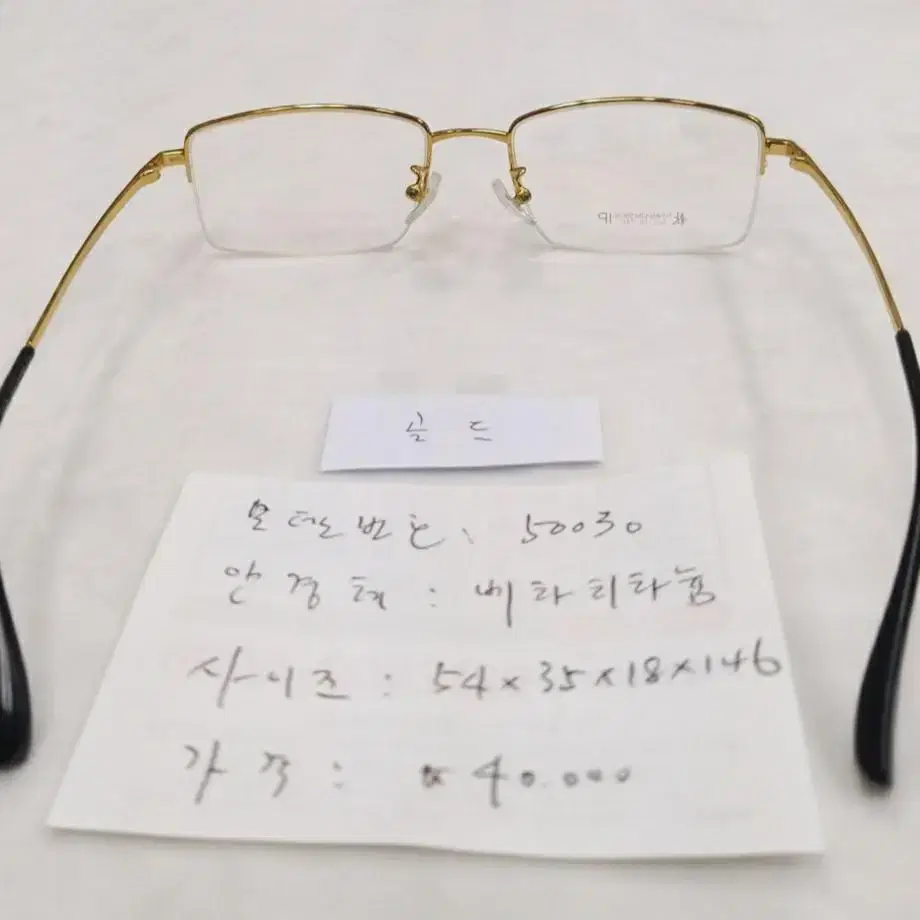 골드
모델번호: 50030
안경테: 베타티타늄
사이즈: 54×35×18×146
가격: ₩40.000